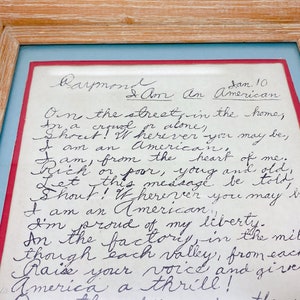 Raymond Jan. 10
I Am An American
On the street, in the home,
In a crowd or alone,
Shout! Wherever you may be,
I am an American,
I am, from the heart of me.
Rich or poor, youg and old
Let this message be told,
Shout! Wherever you may b
I am an American.
I'm proud of my liberty.
In the factory, in the mil
though each valley, from each
Raise your voice and give
America a thrill!